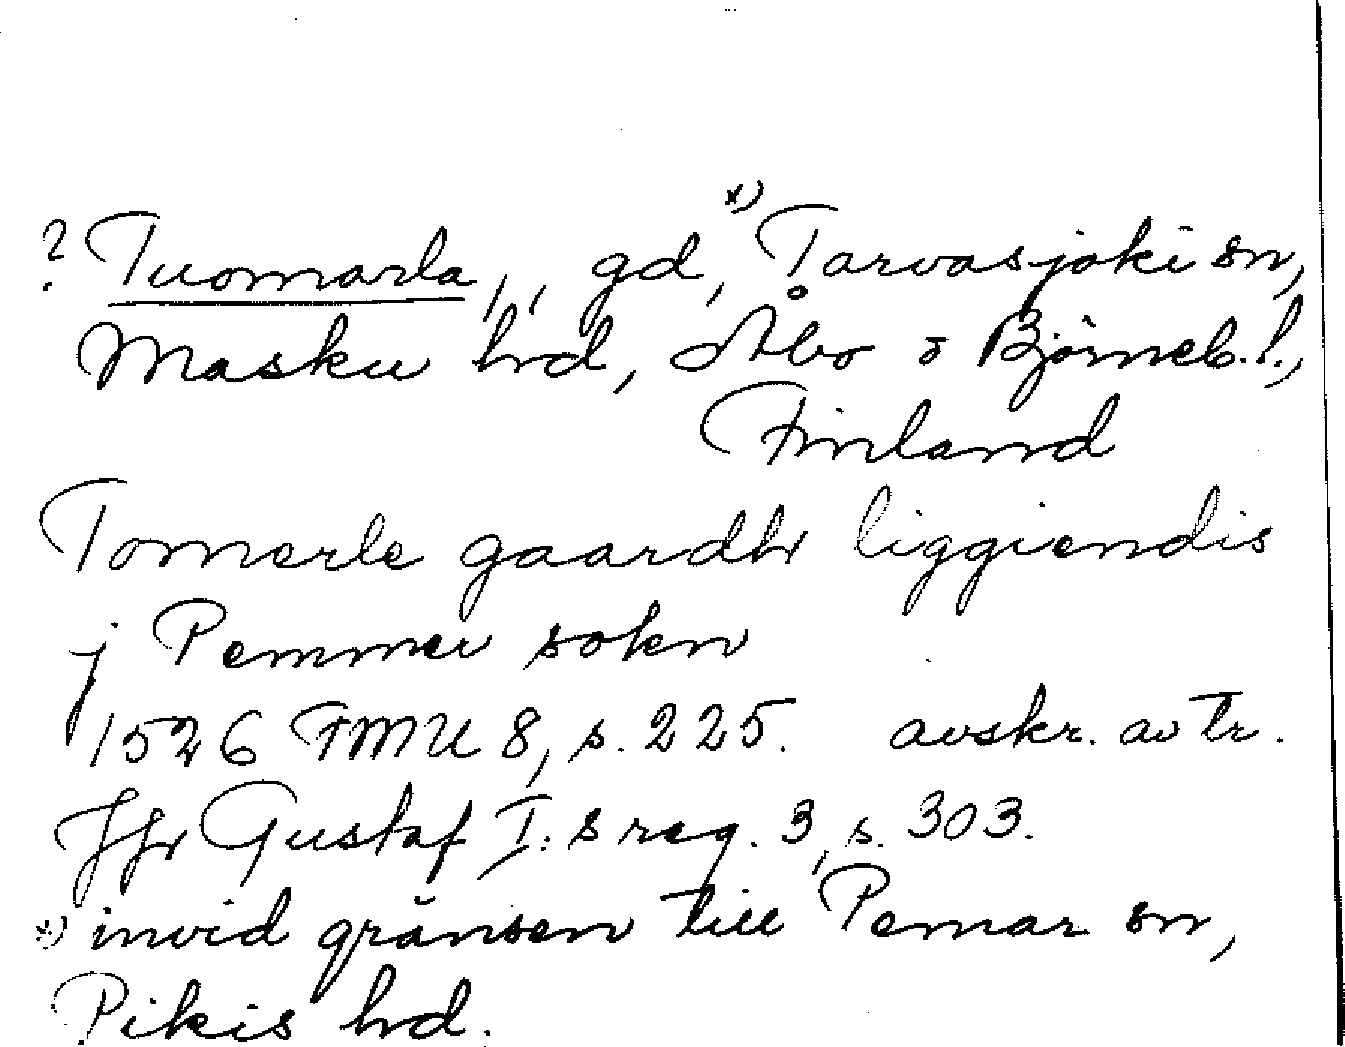 ? Tuomarla, , gd, *) Tarvasjoki sn,
Masku hd, Åbo o Björneb. l.,
Finland
Tomerle gaardh liggiendis
j Pemmer sokn
1526 FMU 8, s. 225. avskr. av tr.
Jfr Gustaf I:s reg. 3, s. 303.
*) invid gränsen till Pemar sn,
Pikis hd.